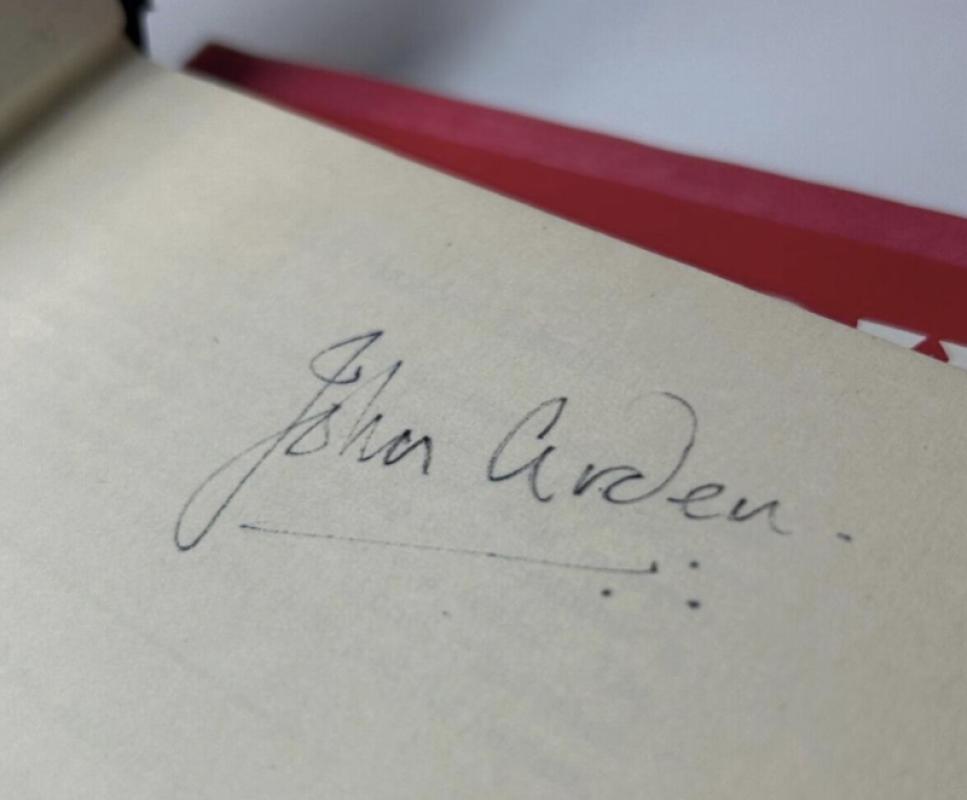 John Arden.